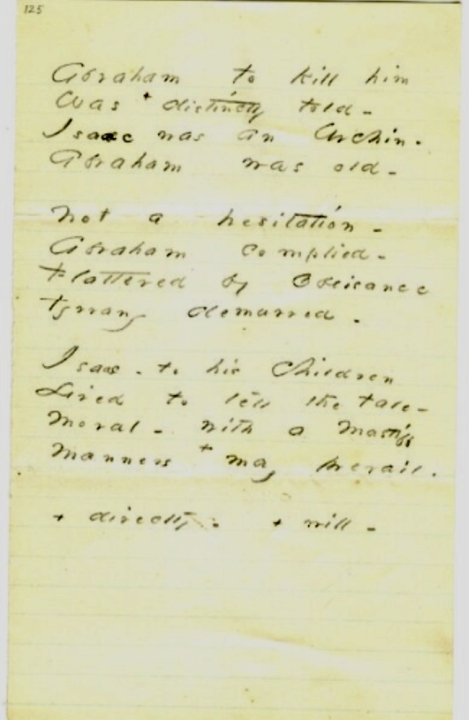 125
Abraham to kill him
Was + distinctly told -
Isaac was an Urchin.
Abraham was old -
Not a hesitation -
Abraham complied -
Flattered by Obeisance
Tyranny demurred.
Isaac - to his Children
Lived to tell the tale -
Moral - with a Mastiff
Manners + may prevail.
+ directly - + will -